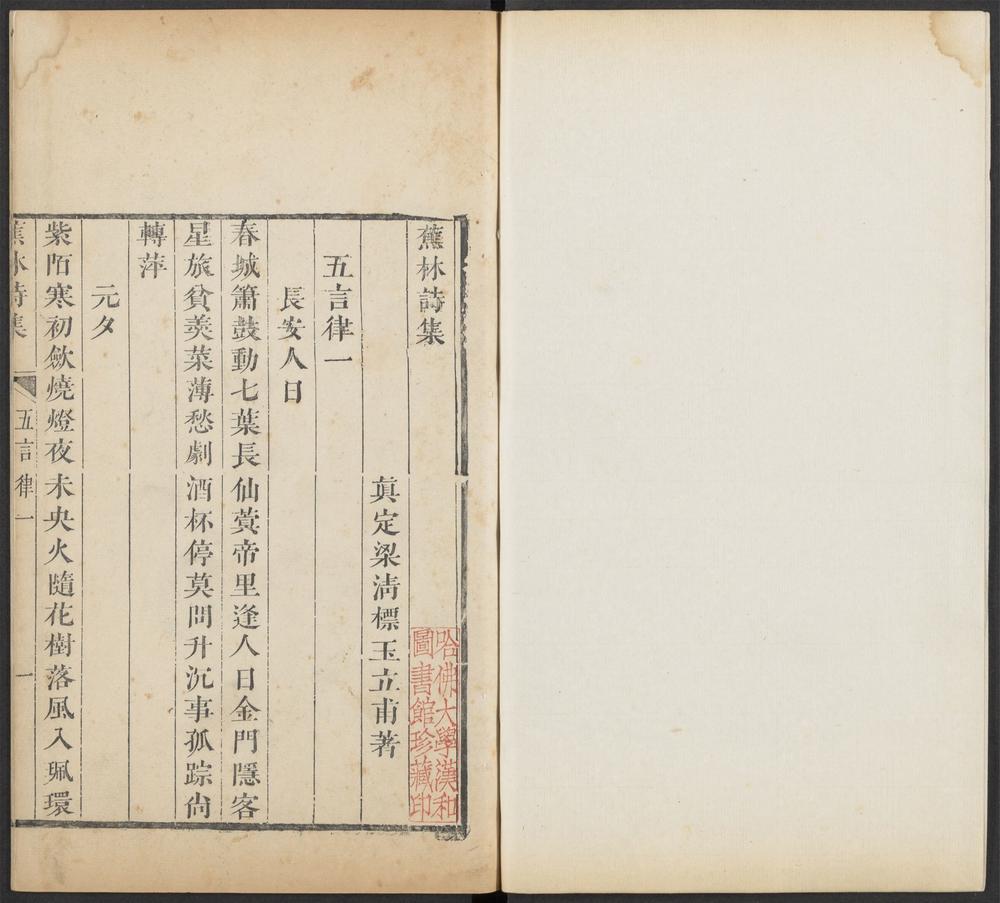 蕉林詩集
真定梁清標玉立甫著
五言律一
長安人日
春城簫鼓動七葉長仙蓂帝里逢人日金門隱客
星旅貧羡菜薄愁劇酒杯停莫問升沉事孤踪尚
轉萍
元夕
紫陌寒初斂燒燈夜未央火隨花樹落風入珮環
蕉林詩集
五言律一
一
哈佛大學漢和
圖書館珍藏印